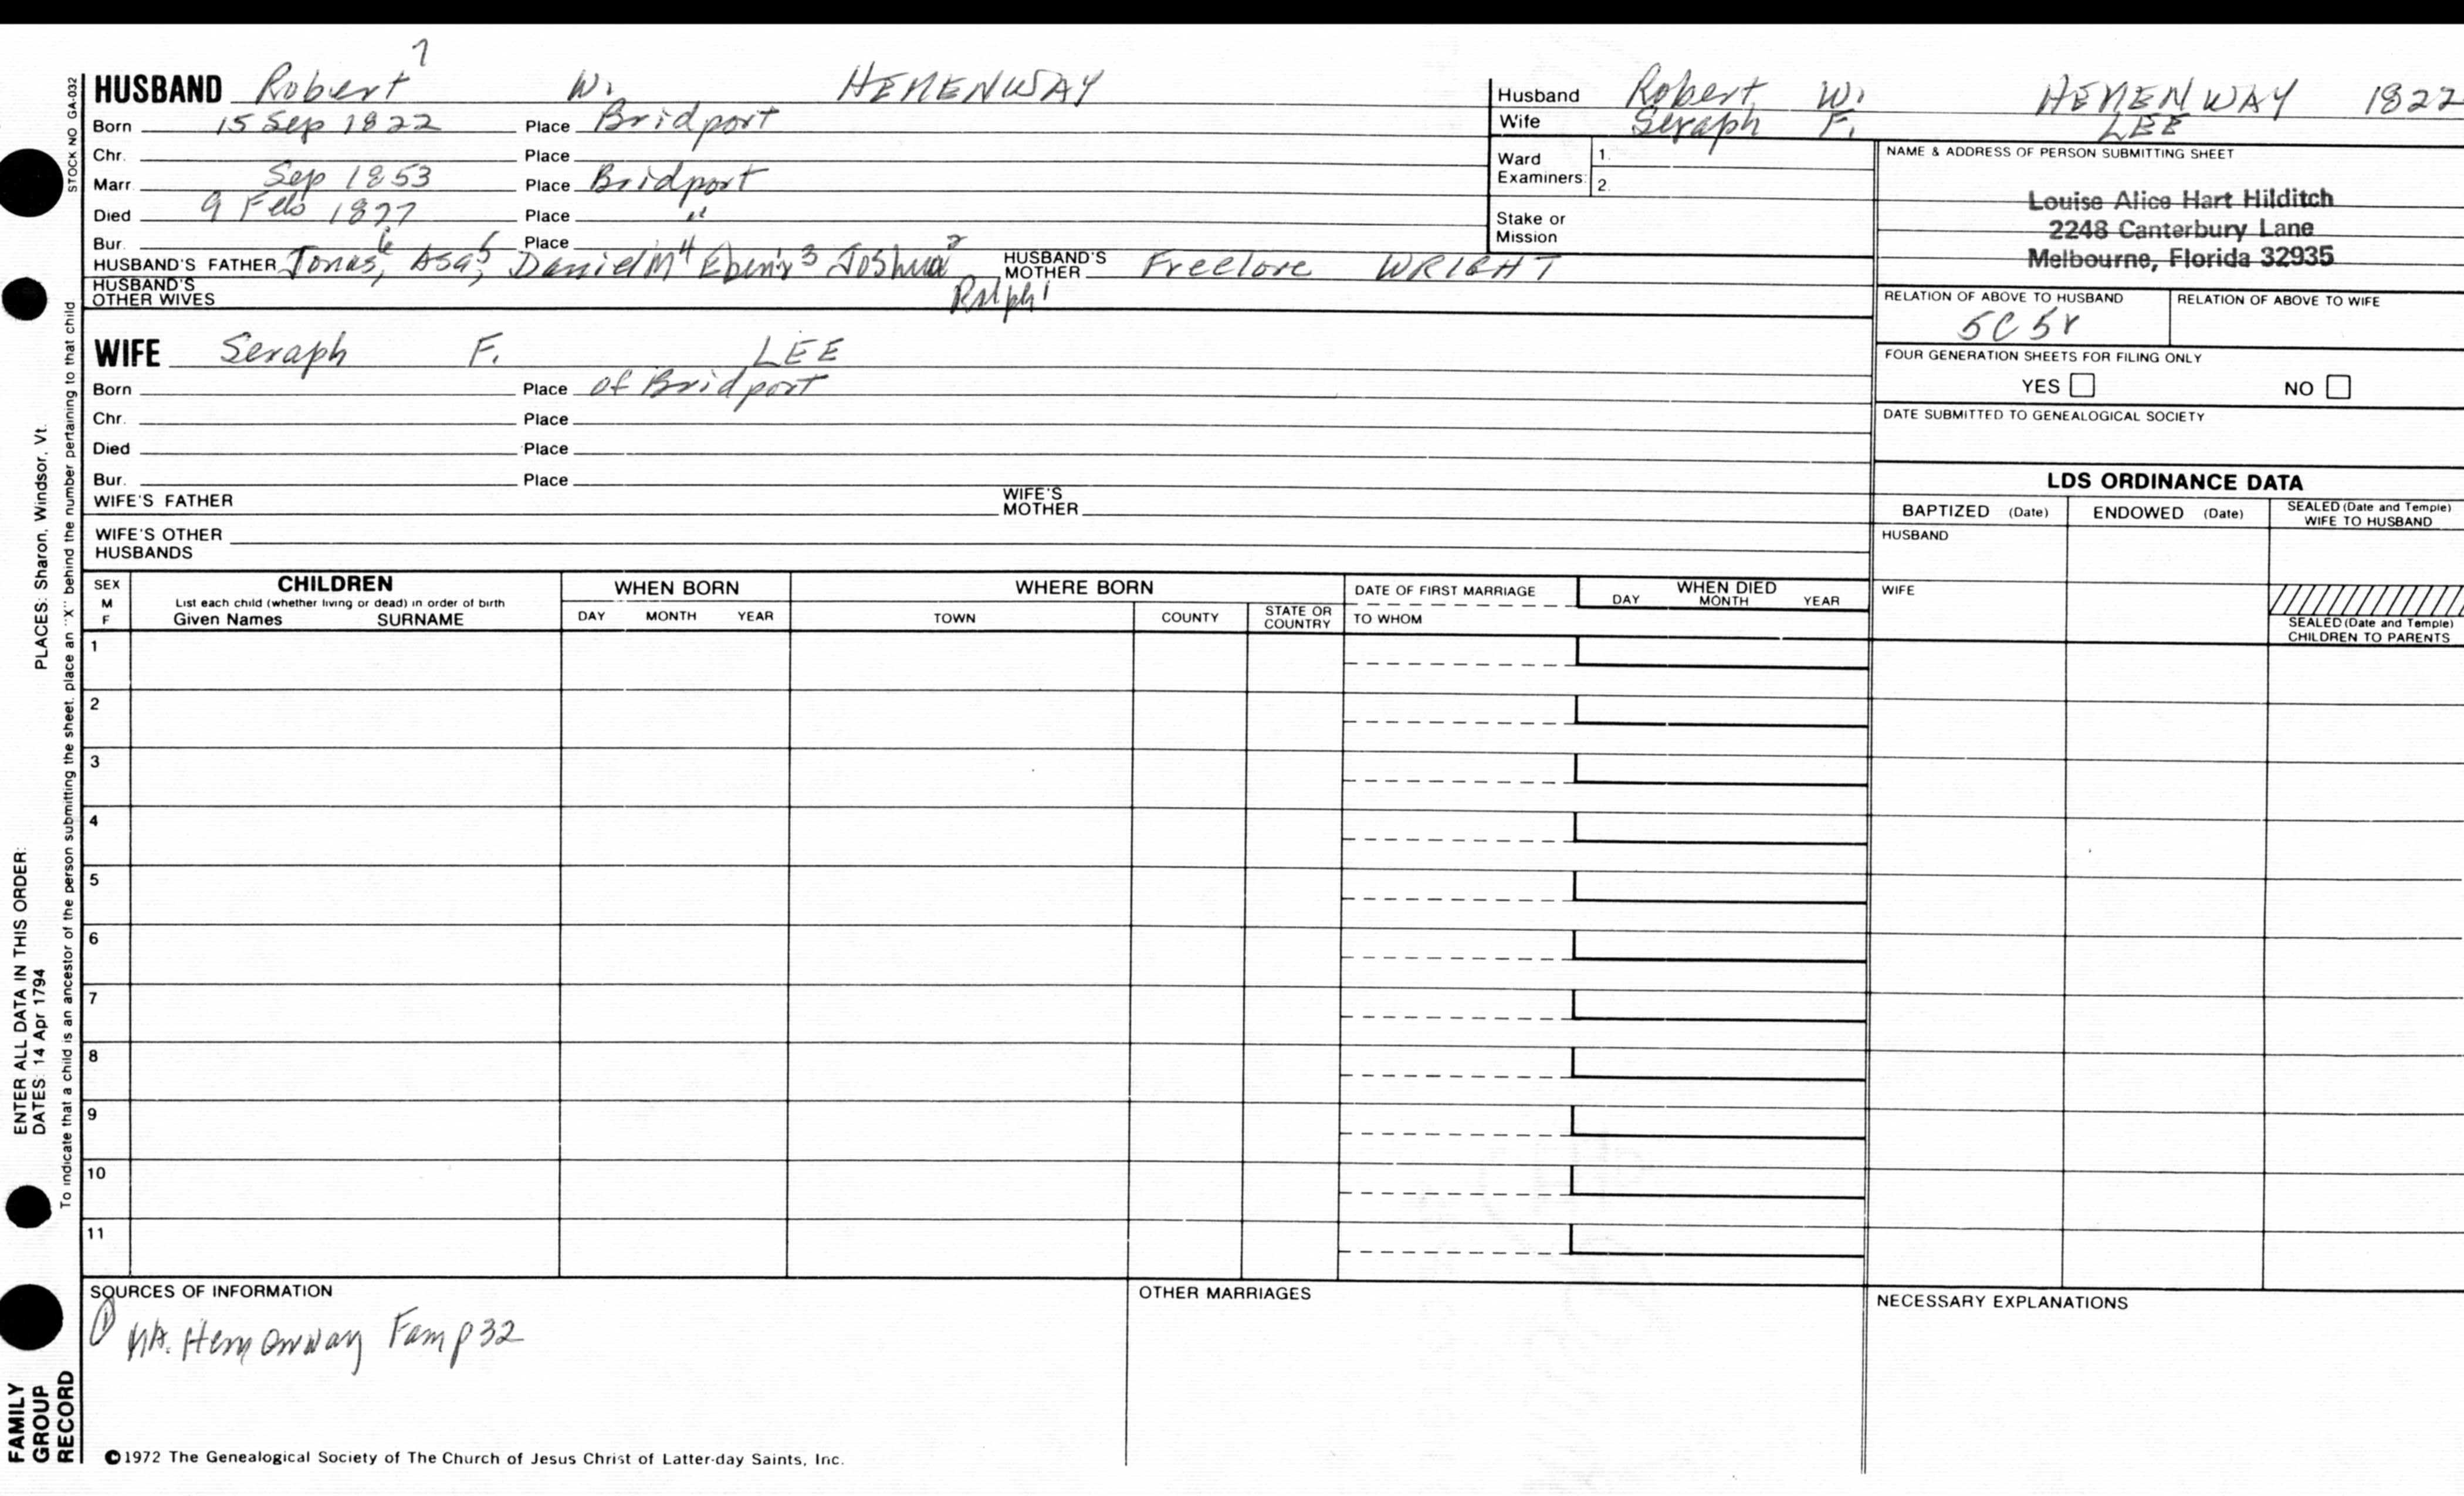 HUSBAND Robert 7 W. HEMENWAY
Born 15 Sep 1822 Place Bridport
Chr. Place
Marr. Sep 1853 Place Bridport
Died 9 Feb Place "
Bur. Place
HUSBAND'S FATHER Jonas 6, Asa 5, Daniel M 4 Eben'r 3 Joshua 2 Ralph 1 HUSBAND'S MOTHER Freelove WRIGHT
HUSBAND'S OTHER WIVES
WIFE Seraph F. LEE
Born Place of Bridport
Chr. Place
Died Place
Bur. Place
WIFE'S FATHER WIFE'S MOTHER
WIFE'S OTHER HUSBANDS
Husband Robert W. HEMENWAY 1822
Wife Seraph F. LEE
Ward Examiners: 1.
2.
Stake or Mission
NAME & ADDRESS OF PERSON SUBMITTING SHEET
Louise Alice Hart Hilditch
2248 Canterbury Lane
Melbourne, Florida 32935
RELATION OF ABOVE TO HUSBAND RELATION OF ABOVE TO WIFE
5C 5r
FOUR GENERATION SHEETS FOR FILING ONLY
YES NO
DATE SUBMITTED TO GENEALOGICAL SOCIETY
LDS ORDINANCE DATA
BAPTIZED (Date) ENDOWED (Date) SEALED (Date and Temple) WIFE TO HUSBAND
HUSBAND
WIFE
SEALED (Date and Temple) CHILDREN TO PARENTS
SEX M F
CHILDREN
List each child (whether living or dead) in order of birth
Given Names SURNAME
WHEN BORN
DAY MONTH YEAR
WHERE BORN
TOWN COUNTY STATE OR COUNTRY
DATE OF FIRST MARRIAGE
TO WHOM
WHEN DIED
DAY MONTH YEAR
1
2
3
4
5
6
7
8
9
10
11
SOURCES OF INFORMATION
① Hemenway Fam p 32
OTHER MARRIAGES
NECESSARY EXPLANATIONS
©1972 The Genealogical Society of The Church of Jesus Christ of Latter-day Saints, Inc.
STOCK NO GA-032
To indicate that a child is an ancestor of the person submitting the sheet, place an "X" behind the number pertaining to that child
ENTER ALL DATA IN THIS ORDER:
DATES: 14 Apr 1794 PLACES: Sharon, Windsor, Vt.
FAMILY
GROUP
RECORD